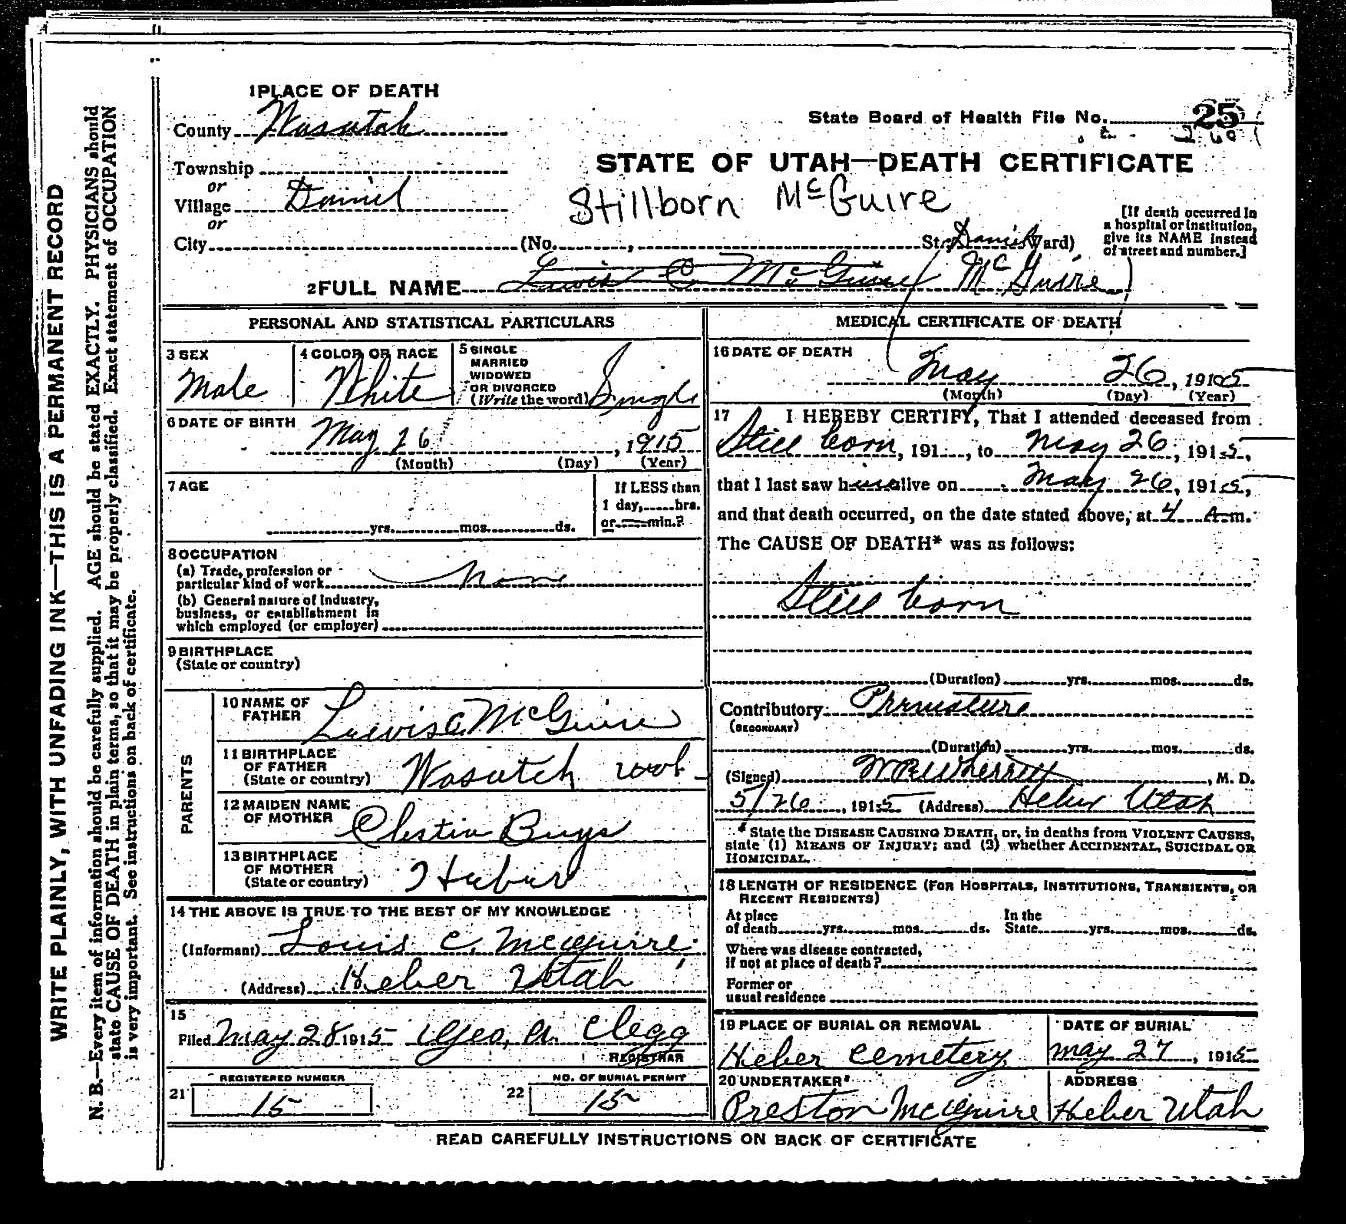 1 PLACE OF DEATH
County Wasatch
Township
or
Village Daniel
or
City
State Board of Health File No. 25
STATE OF UTAH—DEATH CERTIFICATE
Stillborn McGuire
(No. , St.; Daniel Ward)
[If death occurred in a hospital or institution, give its NAME instead of street and number.]
2 FULL NAME Lewis C. McGuire McGuire
WRITE PLAINLY, WITH UNFADING INK—THIS IS A PERMANENT RECORD
N. B.—Every item of information should be carefully supplied. AGE should be stated EXACTLY. PHYSICIANS should
state CAUSE OF DEATH in plain terms, so that it may be properly classified. Exact statement of OCCUPATION
is very important. See instructions on back of certificate.
PERSONAL AND STATISTICAL PARTICULARS
3 SEX
Male
4 COLOR OR RACE
White
5 SINGLE
MARRIED
WIDOWED
OR DIVORCED
(Write the word) Single
6 DATE OF BIRTH
May 26, 1915
(Month) (Day) (Year)
7 AGE
yrs. mos. ds.
If LESS than
1 day, hrs.
or min.?
8 OCCUPATION
(a) Trade, profession or
particular kind of work None
(b) General nature of Industry,
business, or establishment in
which employed (or employer)
9 BIRTHPLACE
(State or country)
PARENTS
10 NAME OF
FATHER Lewis C McGuire
11 BIRTHPLACE
OF FATHER
(State or country) Wasatch
12 MAIDEN NAME
OF MOTHER Buys
13 BIRTHPLACE
OF MOTHER
(State or country) Heber
14 THE ABOVE IS TRUE TO THE BEST OF MY KNOWLEDGE
(Informant) Louis C. McGuire
(Address) Heber Utah
15
Filed May 28 1915 Geo. A. Clegg
REGISTRAR
REGISTERED NUMBER
21 15
NO. OF BURIAL PERMIT
22 15
MEDICAL CERTIFICATE OF DEATH
16 DATE OF DEATH
May 26, 1915
(Month) (Day) (Year)
17 I HEREBY CERTIFY, That I attended deceased from
Still born, 191 , to May 26, 1915,
that I last saw him alive on May 26, 1915,
and that death occurred, on the date stated above, at 4 A.m.
The CAUSE OF DEATH* was as follows:
Still born
(Duration) yrs. mos. ds.
Contributory Premature
(SECONDARY)
(Duration) yrs. mos. ds.
(Signed) W R Wherritt, M. D.
5/26, 1915 (Address) Heber Utah
* State the DISEASE CAUSING DEATH, or, in deaths from VIOLENT CAUSES,
state (1) MEANS OF INJURY; and (2) whether ACCIDENTAL, SUICIDAL OR
HOMICIDAL.
18 LENGTH OF RESIDENCE (FOR HOSPITALS, INSTITUTIONS, TRANSIENTS, OR
RECENT RESIDENTS)
At place
of death yrs. mos. ds.
In the
State yrs. mos. ds.
Where was disease contracted,
if not at place of death?
Former or
usual residence
19 PLACE OF BURIAL OR REMOVAL
Heber Cemetery
DATE OF BURIAL
May 27, 1915
20 UNDERTAKER
Preston McGuire
ADDRESS
Heber Utah
READ CAREFULLY INSTRUCTIONS ON BACK OF CERTIFICATE